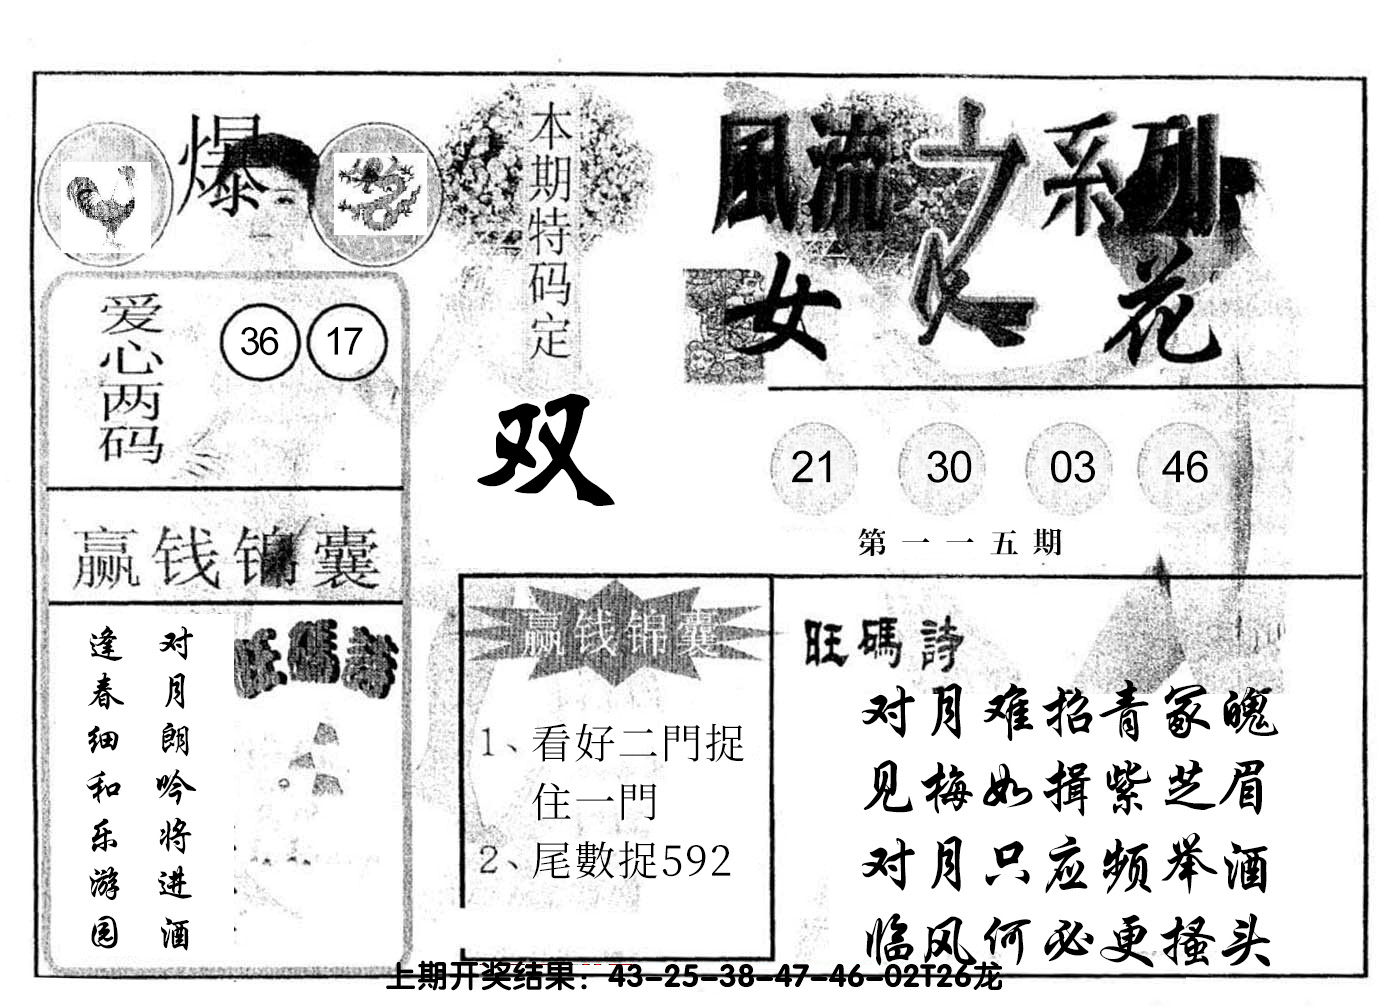 爆
本期特码定
双
風流之系列
女人花
爱心两码
36 17
21 30 03 46
第一一五期
赢钱锦囊
对月朗吟将进酒
逢春细和乐游园
旺碼詩
赢钱锦囊
1、看好二門捉
住一門
2、尾數捉592
旺碼詩
对月难招青冢魄
见梅如揖紫芝眉
对月只应频举酒
临风何必更搔头
上期开奖结果：43-25-38-47-46-02T26龙